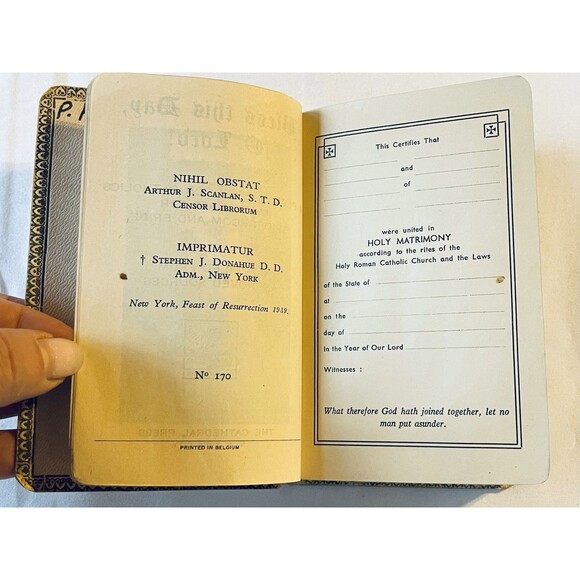 P.
NIHIL OBSTAT
Arthur J. Scanlan, S. T. D.
Censor Librorum
IMPRIMATUR
† Stephen J. Donahue D. D.
Adm., New York
New York, Feast of Resurrection 1939.
No 170
PRINTED IN BELGIUM
This Certifies That
and
of
were united in
HOLY MATRIMONY
according to the rites of the
Holy Roman Catholic Church and the Laws
of the State of
at
on the
day of
in the Year of Our Lord
Witnesses :
What therefore God hath joined together, let no
man put asunder.